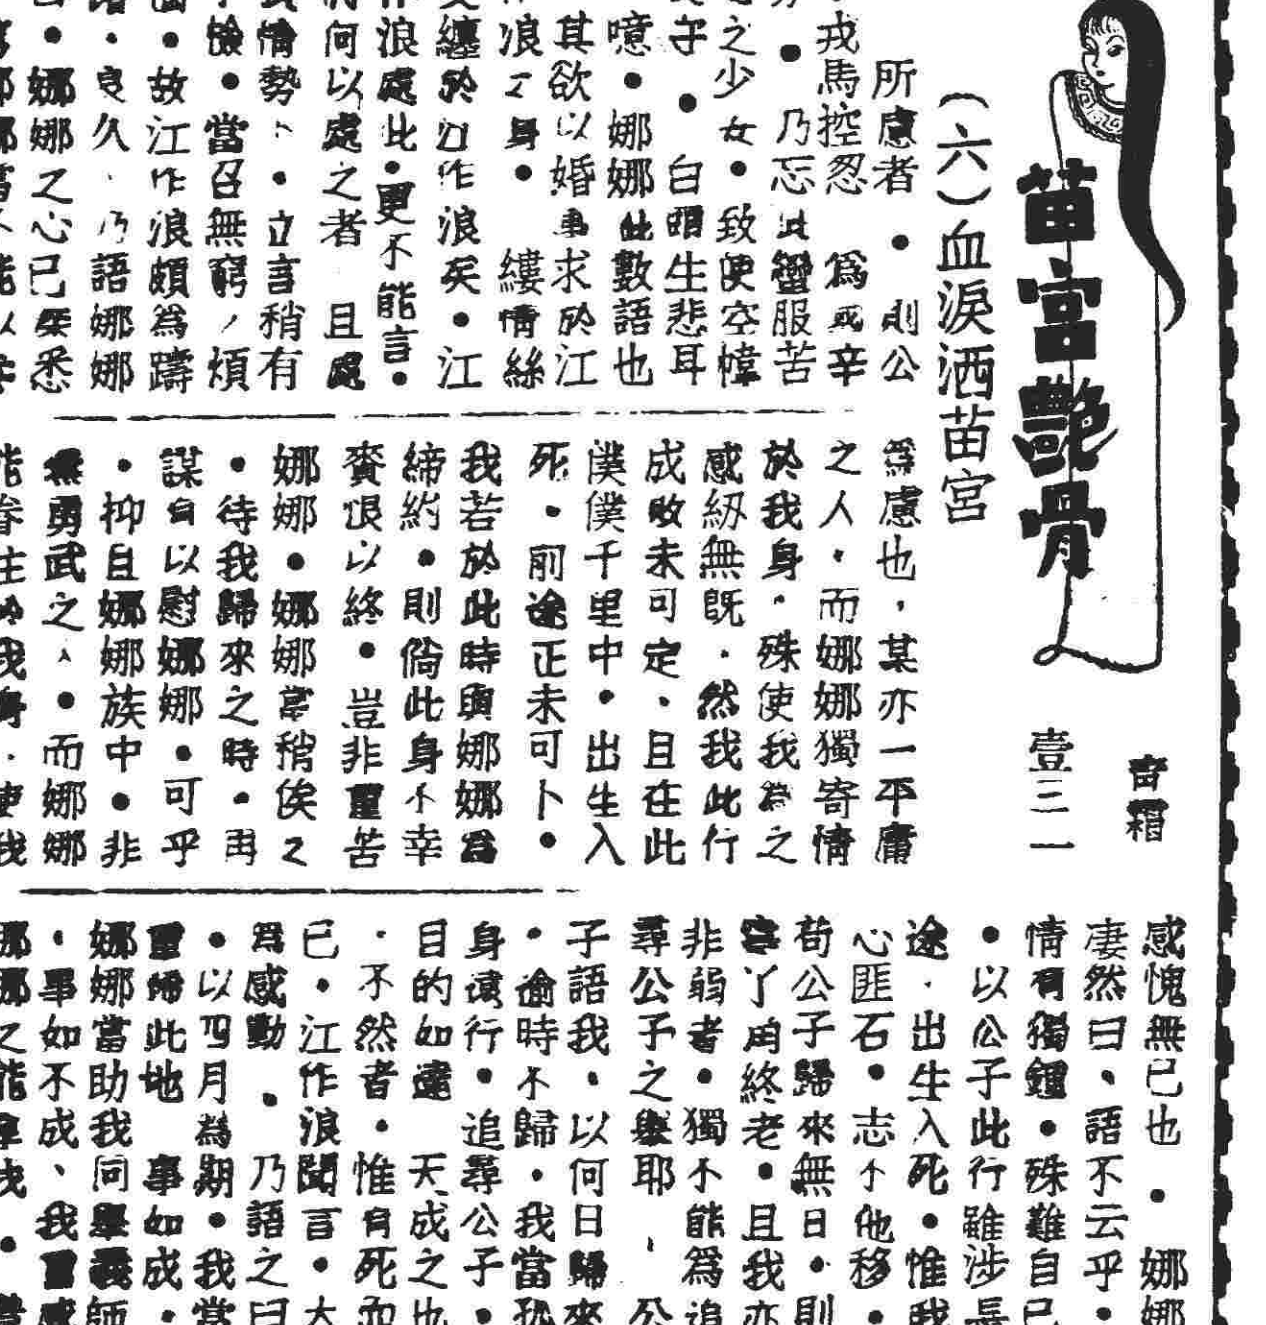 苗宮艷骨
壹三一
(六)血淚洒苗宮
所慮者・則公
戎馬控忽 爲國辛
・乃忘此蠻服苦
之少女・致使空幃
守・白頭生悲耳
噫・娜娜此數語也
其欲以婚事求於江
浪之身・縷情絲
纏於江作浪矣・江
作浪處此・更不能言・
何以處之者 且處
情勢下・立言稍有
・當召無窮之煩
・故江作浪頗爲躊
・良久、乃語娜娜
・娜娜之心已柒悉
爲慮也，某亦一平庸
之人・而娜娜獨寄情
於我身・殊使我為之
感紉無旣・然我此行
成敗未可定、且在此
僕僕千里中・出生入
死・前途正未可卜・
我若於此時與娜娜爲
締約・則倘此身不幸
賫恨以終・豈非重苦
娜娜・娜娜當稍俟之
・待我歸來之時・再
謀有以慰娜娜・可乎
・抑且娜娜族中・非
無勇武之人・而娜娜
能眷注於我身・使我
感愧無已也・娜娜
凄然曰、語不云乎・
情有獨鍾・殊難自已
・以公子此行雖涉長
途・出生入死・惟我
心匪石・志不他移・
苟公子歸來無日・則
寧丫角終老・且我亦
非弱者・獨不能爲追
尋公子之舉耶 、公
子語我・以何日歸來
・逾時不歸・我當孤
身遠行・追尋公子・
目的如達 天成之也
・不然者・惟有死而
已・江作浪聞言・大
爲感動・乃語之曰
・以四月為期・我當
重歸此地 事如成・
娜娜當助我同舉義師
・事如不成、我重感